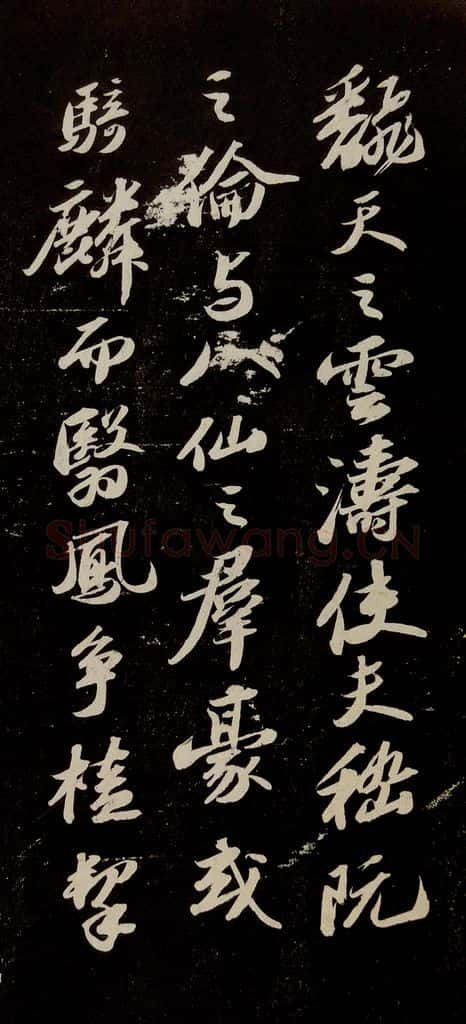 翻天之雲濤使夫嵇阮
之倫与八仙之羣豪或
騎麟而翳鳳争榼挈
Shufawang.CN